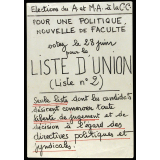 Elections du A et MA à la CG
POUR UNE POLITIQUE
NOUVELLE DE FACULTE
votez le 28 juin
pour la
LISTE D'UNION
(Liste n° 2)
Seule liste dont les candidats
désirent conserver toute
liberté de jugement et de
décision à l'égard des
directives politiques et
syndicales